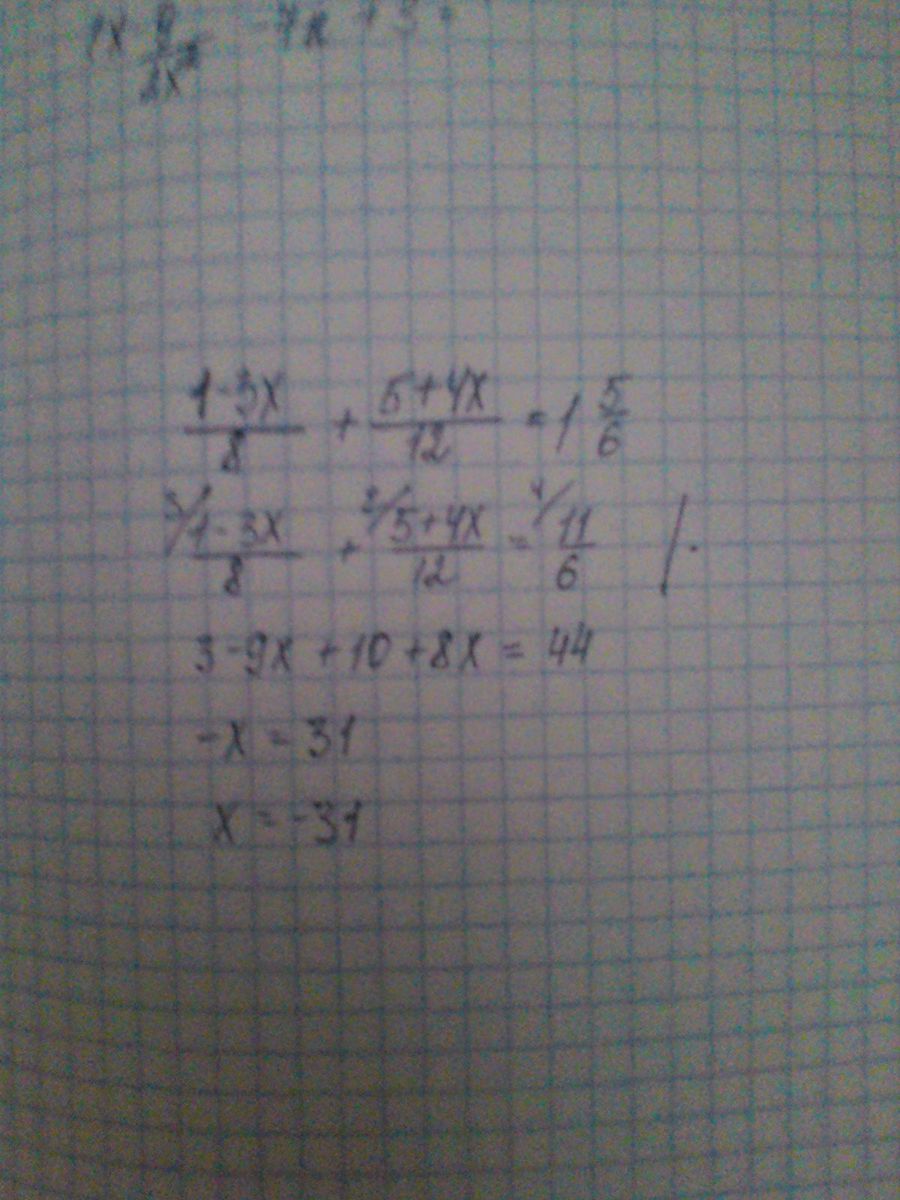 -4x + 3
(1-3x)/8 + (5+4x)/12 = 1 5/6
3/ (1-3x)/8 + 2/ (5+4x)/12 = 4/ 11/6 |·
3-9x+10+8x = 44
-x = 31
x = -31